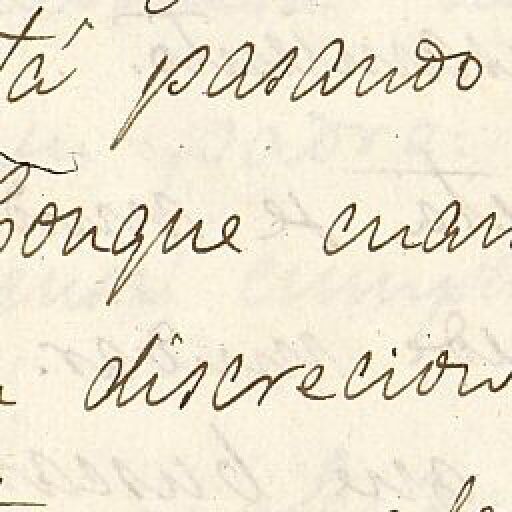 tá pasando
Conque cuan
discrecion